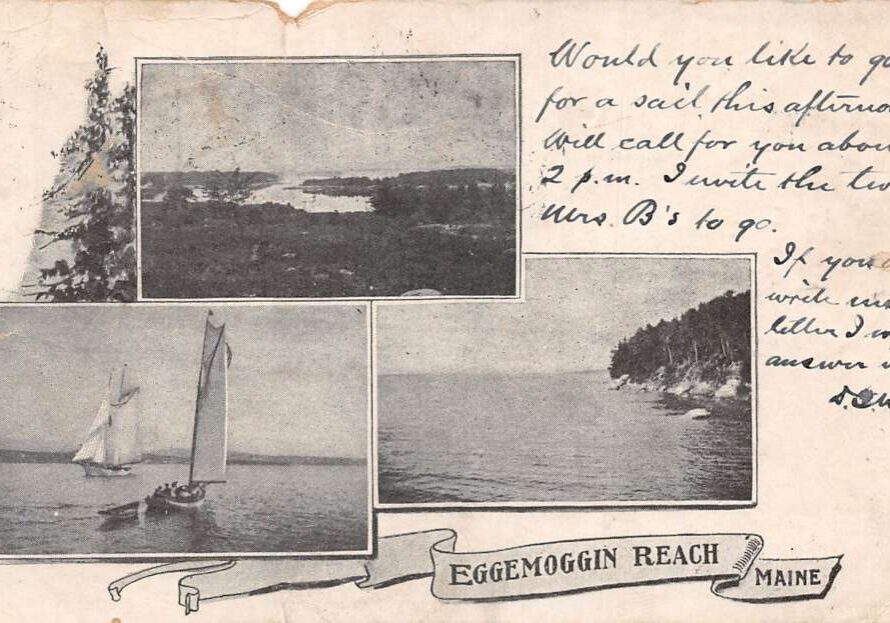 Would you like to go
for a sail this afterno
Will call for you abou
2 p.m. I invite the tw
Mrs. B's to go.
If you
write me
letter I w
answer
EGGEMOGGIN REACH
MAINE